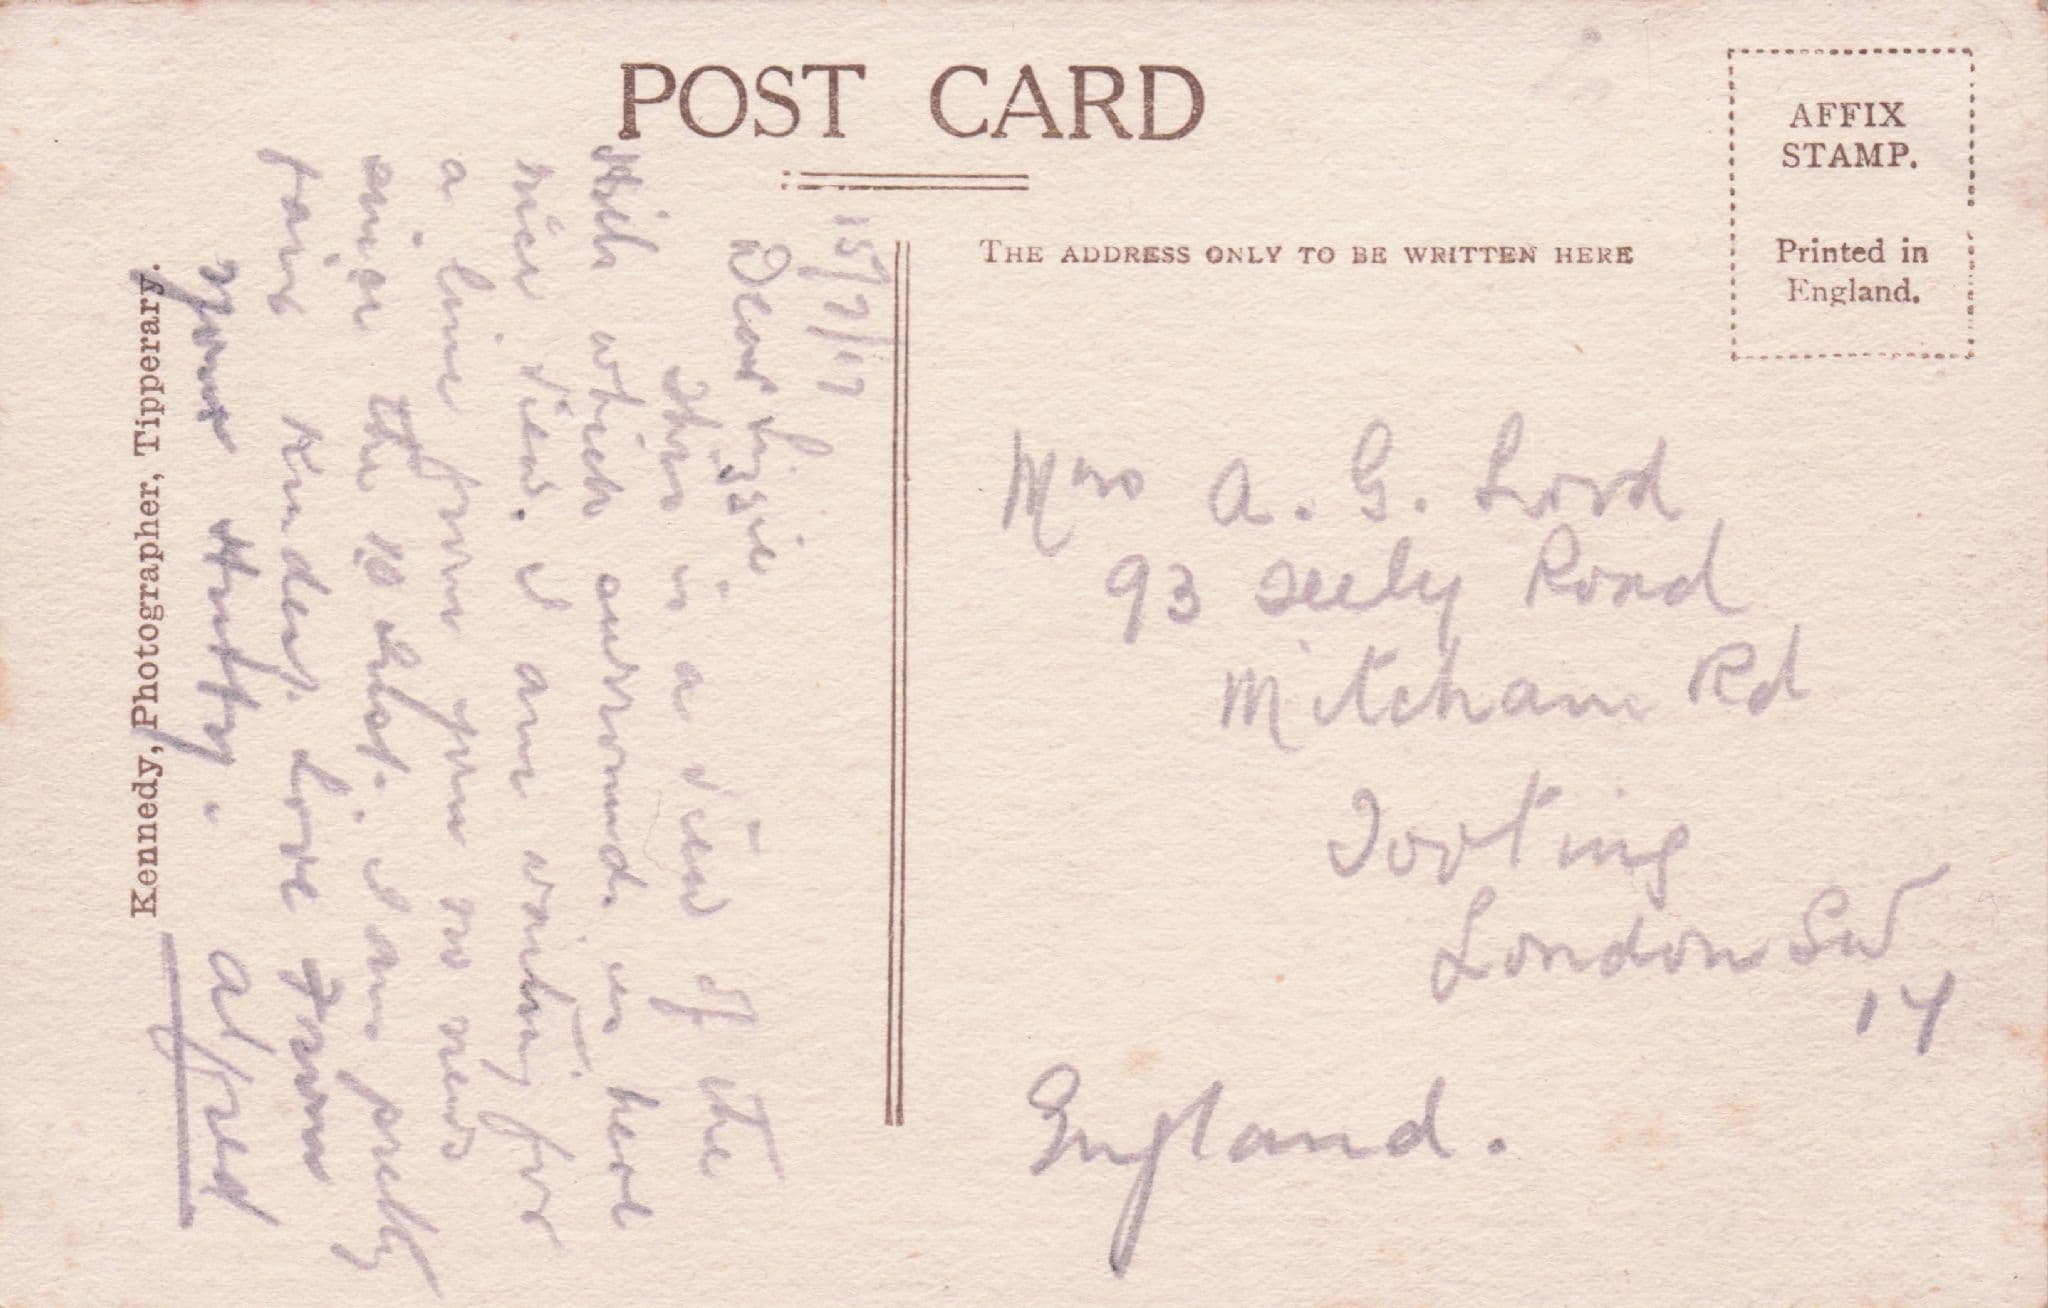 POST CARD
AFFIX
STAMP.
Printed in
England.
THE ADDRESS ONLY TO BE WRITTEN HERE
Kennedy, Photographer, Tipperary.
15/7/17
Dear Lissie
This is a view of the
which surrounds us here
nice view. I am waiting for
a line from you no news
since the 10 inst. I am pretty
fair Kindest love from
Your Hubby.
Alfred
Mrs A. G. Lord
93 Seely Road
Mitcham Rd
Tooting
London SW
17
England.